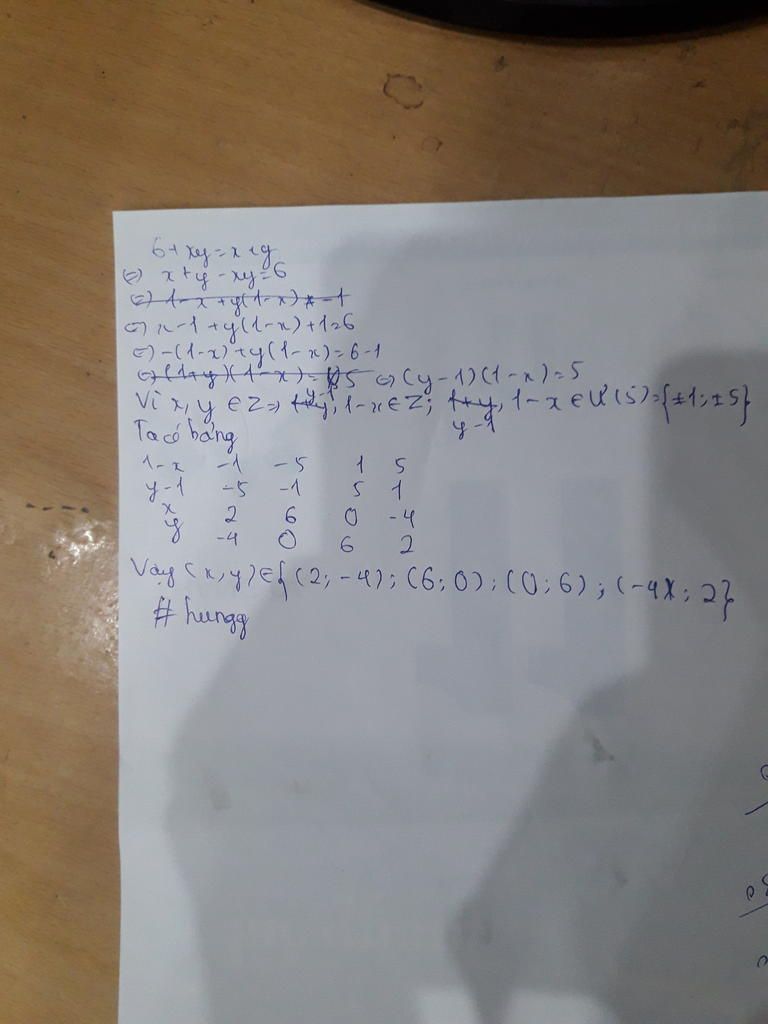 6 + xy = x + y
⇔ x + y - xy = 6
⇔ x - 1 + y(1 - x) + 1 = 6
⇔ -(1 - x) + y(1 - x) = 6 - 1
⇔ (y - 1)(1 - x) = 5
Vì x, y ∈ Z ⇒ y - 1, 1 - x ∈ Z; y - 1, 1 - x ∈ Ư(5) = {±1; ±5}
Ta có bảng
1-x -1 -5 1 5
y-1 -5 -1 5 1
x 2 6 0 -4
y -4 0 6 2
Vậy (x, y) ∈ {(2; -4); (6; 0); (0; 6); (-4; 2}
# hungg